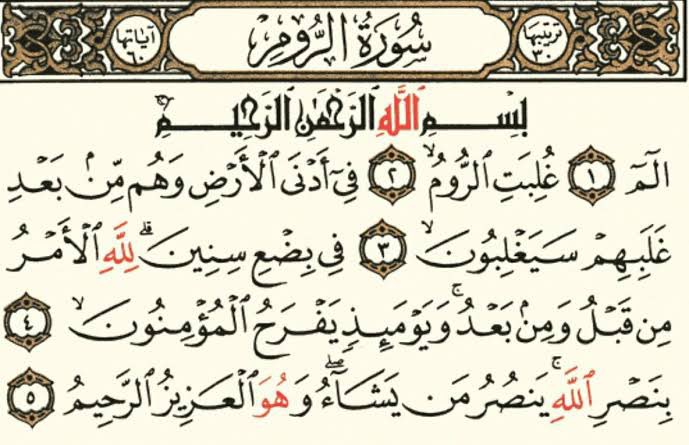 ترتيبها ٣٠ سُورَةُ الرُّومِ آياتها ٦٠
بِسْمِ ٱللَّهِ ٱلرَّحْمَٰنِ ٱلرَّحِيمِ
الٓمٓ ۝١ غُلِبَتِ ٱلرُّومُ ۙ ۝٢ فِىٓ أَدْنَى ٱلْأَرْضِ وَهُم مِّنۢ بَعْدِ
غَلَبِهِمْ سَيَغْلِبُونَ ۙ ۝٣ فِى بِضْعِ سِنِينَ ۗ لِلَّهِ ٱلْأَمْرُ
مِن قَبْلُ وَمِنۢ بَعْدُ ۚ وَيَوْمَئِذٍ يَفْرَحُ ٱلْمُؤْمِنُونَ ۙ ۝٤
بِنَصْرِ ٱللَّهِ ۚ يَنصُرُ مَن يَشَآءُ ۖ وَهُوَ ٱلْعَزِيزُ ٱلرَّحِيمُ ۝٥